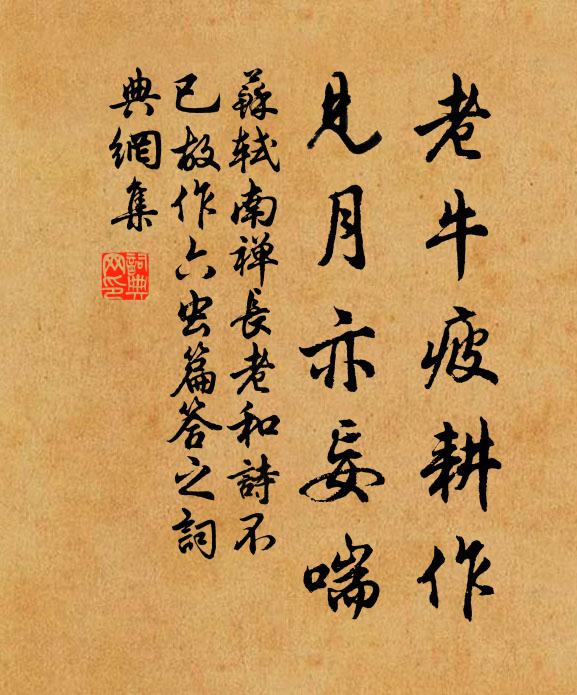 老牛疲耕作
见月亦妄喘
蘇軾南禅長老和詩不
已故作六虫篇答之詞
典網集
詞典
网印